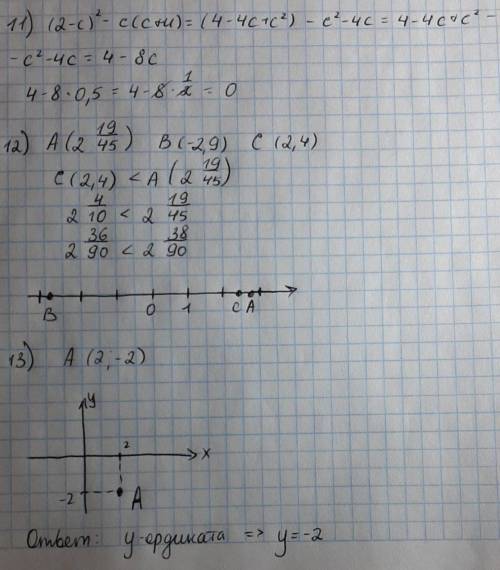 11) (2-c)² - c(c+4) = (4-4c+c²) - c²-4c = 4-4c+c² -
-c²-4c = 4-8c
4-8·0,5 = 4-8·1/2 = 0
12) A(2 19/45) B(-2,9) C(2,4)
C(2,4) < A(2 19/45)
2 4/10 < 2 19/45
2 36/90 < 2 38/90
B 0 1 C A
13) A (2;-2)
y
2
x
-2 A
Ответ: y-ордината => y=-2